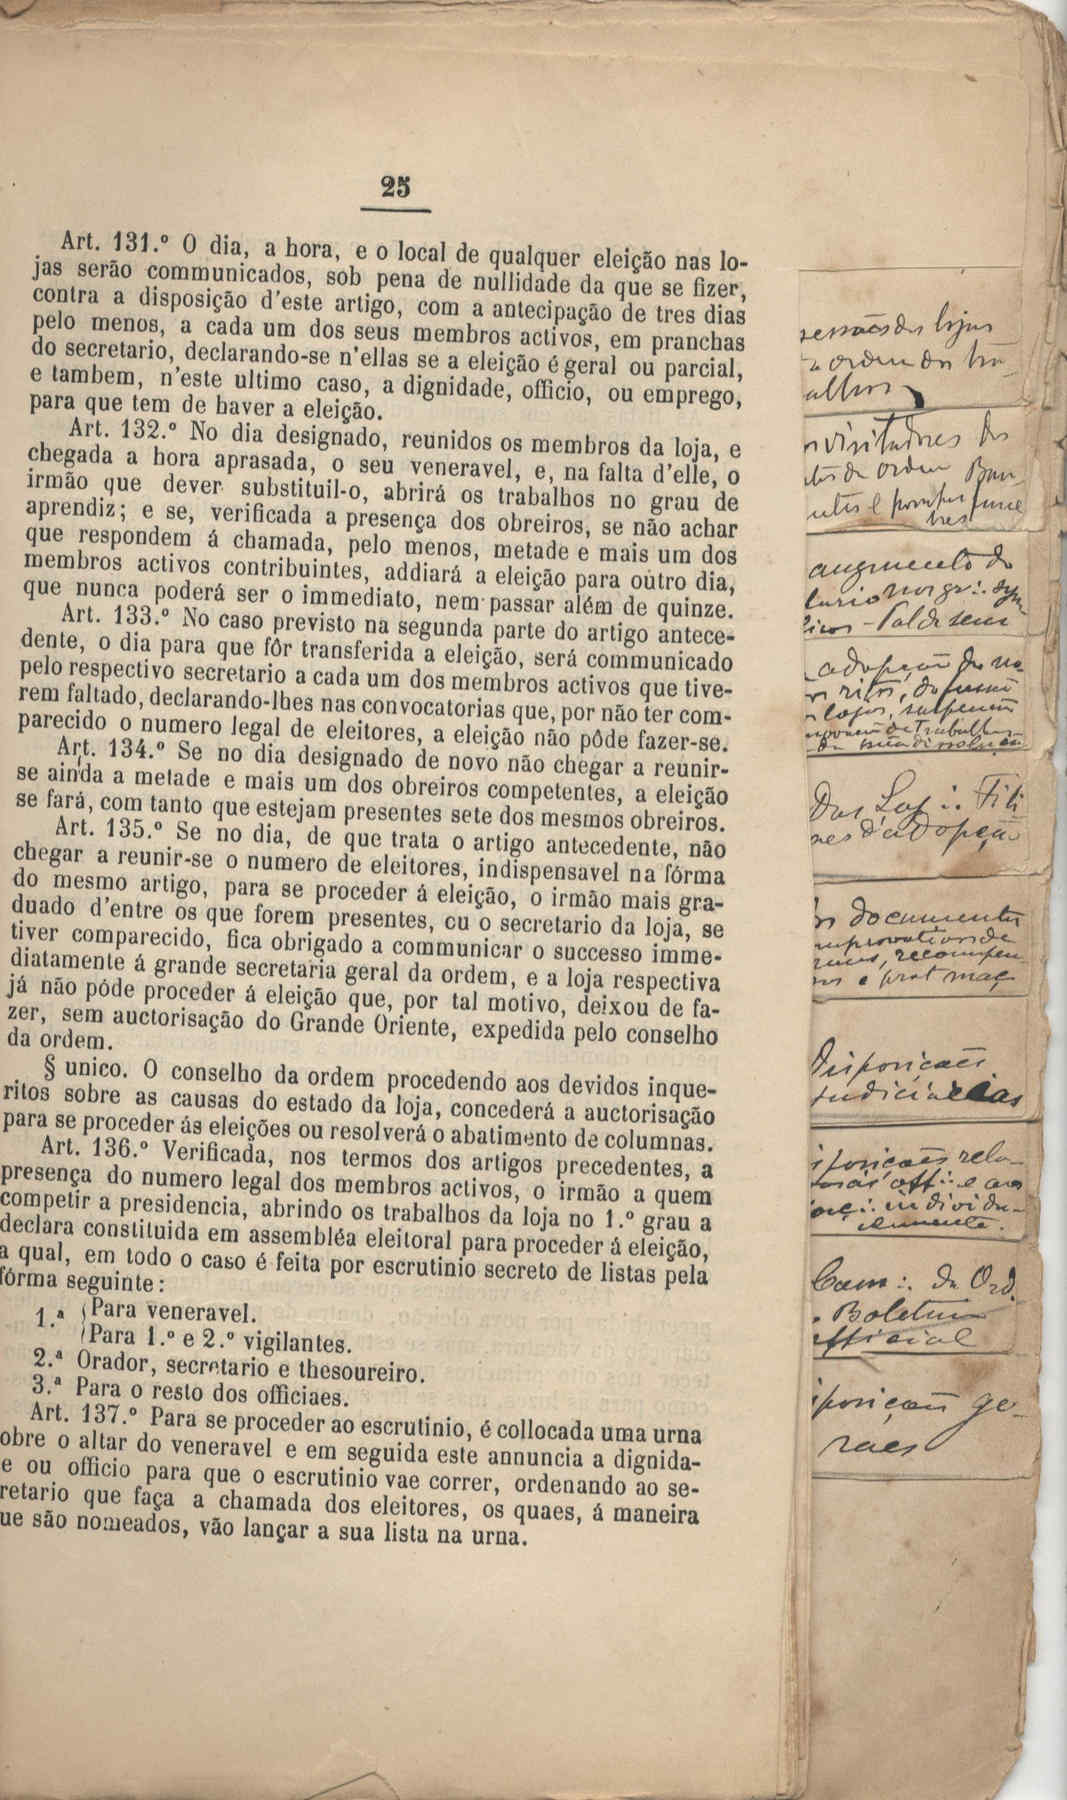 25
Art. 131.º O dia, a hora, e o local de qualquer eleição nas lo-
jas serão communicados, sob pena de nullidade da que se fizer,
contra a disposição d'este artigo, com a antecipação de tres dias
pelo menos, a cada um dos seus membros activos, em pranchas
do secretario, declarando-se n'ellas se a eleição é geral ou parcial,
e tambem, n'este ultimo caso, a dignidade, officio, ou emprego,
para que tem de haver a eleição.
Art. 132.º No dia designado, reunidos os membros da loja, e
chegada a hora aprasada, o seu veneravel, e, na falta d'elle, o
irmão que dever substituil-o, abrirá os trabalhos no grau de
aprendiz; e se, verificada a presença dos obreiros, se não achar
que respondem á chamada, pelo menos, metade e mais um dos
membros activos contribuintes, addiará a eleição para outro dia,
que nunca poderá ser o immediato, nem passar além de quinze.
Art. 133.º No caso previsto na segunda parte do artigo antece-
dente, o dia para que fôr transferida a eleição, será communicado
pelo respectivo secretario a cada um dos membros activos que tive-
rem faltado, declarando-lhes nas convocatorias que, por não ter com-
parecido o numero legal de eleitores, a eleição não pôde fazer-se.
Art. 134.º Se no dia designado de novo não chegar a reunir-
se ainda a metade e mais um dos obreiros competentes, a eleição
se fará, com tanto que estejam presentes sete dos mesmos obreiros.
Art. 135.º Se no dia, de que trata o artigo antecedente, não
chegar a reunir-se o numero de eleitores, indispensavel na fórma
do mesmo artigo, para se proceder á eleição, o irmão mais gra-
duado d'entre os que forem presentes, cu o secretario da loja, se
tiver comparecido, fica obrigado a communicar o successo imme-
diatamente á grande secretaria geral da ordem, e a loja respectiva
já não póde proceder á eleição que, por tal motivo, deixou de fa-
zer, sem auctorisação do Grande Oriente, expedida pelo conselho
da ordem.
§ unico. O conselho da ordem procedendo aos devidos inque-
ritos sobre as causas do estado da loja, concederá a auctorisação
para se proceder ás eleições ou resolverá o abatimento de columnas.
Art. 136.º Verificada, nos termos dos artigos precedentes, a
presença do numero legal dos membros activos, o irmão a quem
competir a presidencia, abrindo os trabalhos da loja no 1.º grau a
declara constituida em assembléa eleitoral para proceder á eleição,
a qual, em todo o caso é feita por escrutinio secreto de listas pela
fórma seguinte:
1.ª { Para veneravel.
Para 1.º e 2.º vigilantes.
2.ª Orador, secretario e thesoureiro.
3.ª Para o resto dos officiaes.
Art. 137.º Para se proceder ao escrutinio, é collocada uma urna
obre o altar do veneravel e em seguida este annuncia a dignida-
e ou officio para que o escrutinio vae correr, ordenando ao se-
retario que faça a chamada dos eleitores, os quaes, á maneira
ue são nomeados, vão lançar a sua lista na urna.
sessões das lojas
ordem dos tra-
alhos
visitadores dos
da ordem
augmento do
adopção de no
ritos, de
lojas,
Das Loj∴
d'adopção
documentos
e prof maç
Disposições
judiciarias
off∴ e
individu-
almente.
Cam∴ da Ord.
Boletim
official
posições ge-
raes